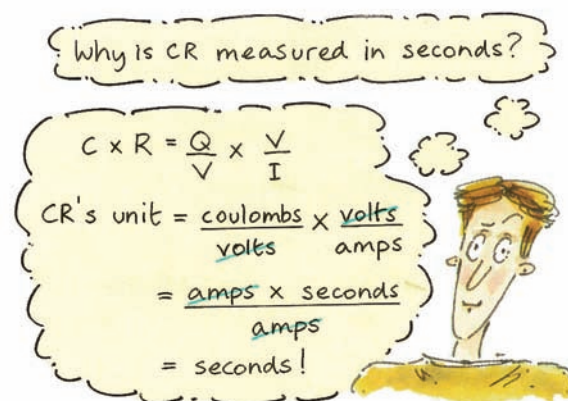 Why is CR measured in seconds?
C x R = Q/V x V/I
CR's unit = coulombs/volts x volts/amps
= amps x seconds/amps
= seconds!